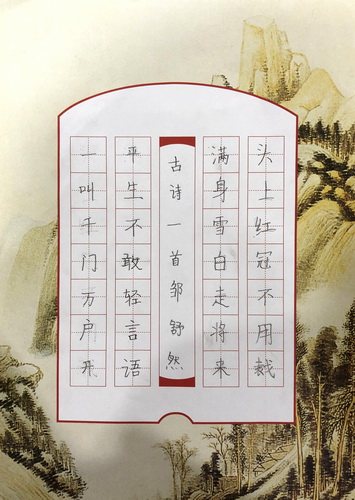 头上红冠不用裁
满身雪白走将来
古诗一首邹舒然
平生不敢轻言语
一叫千门万户开